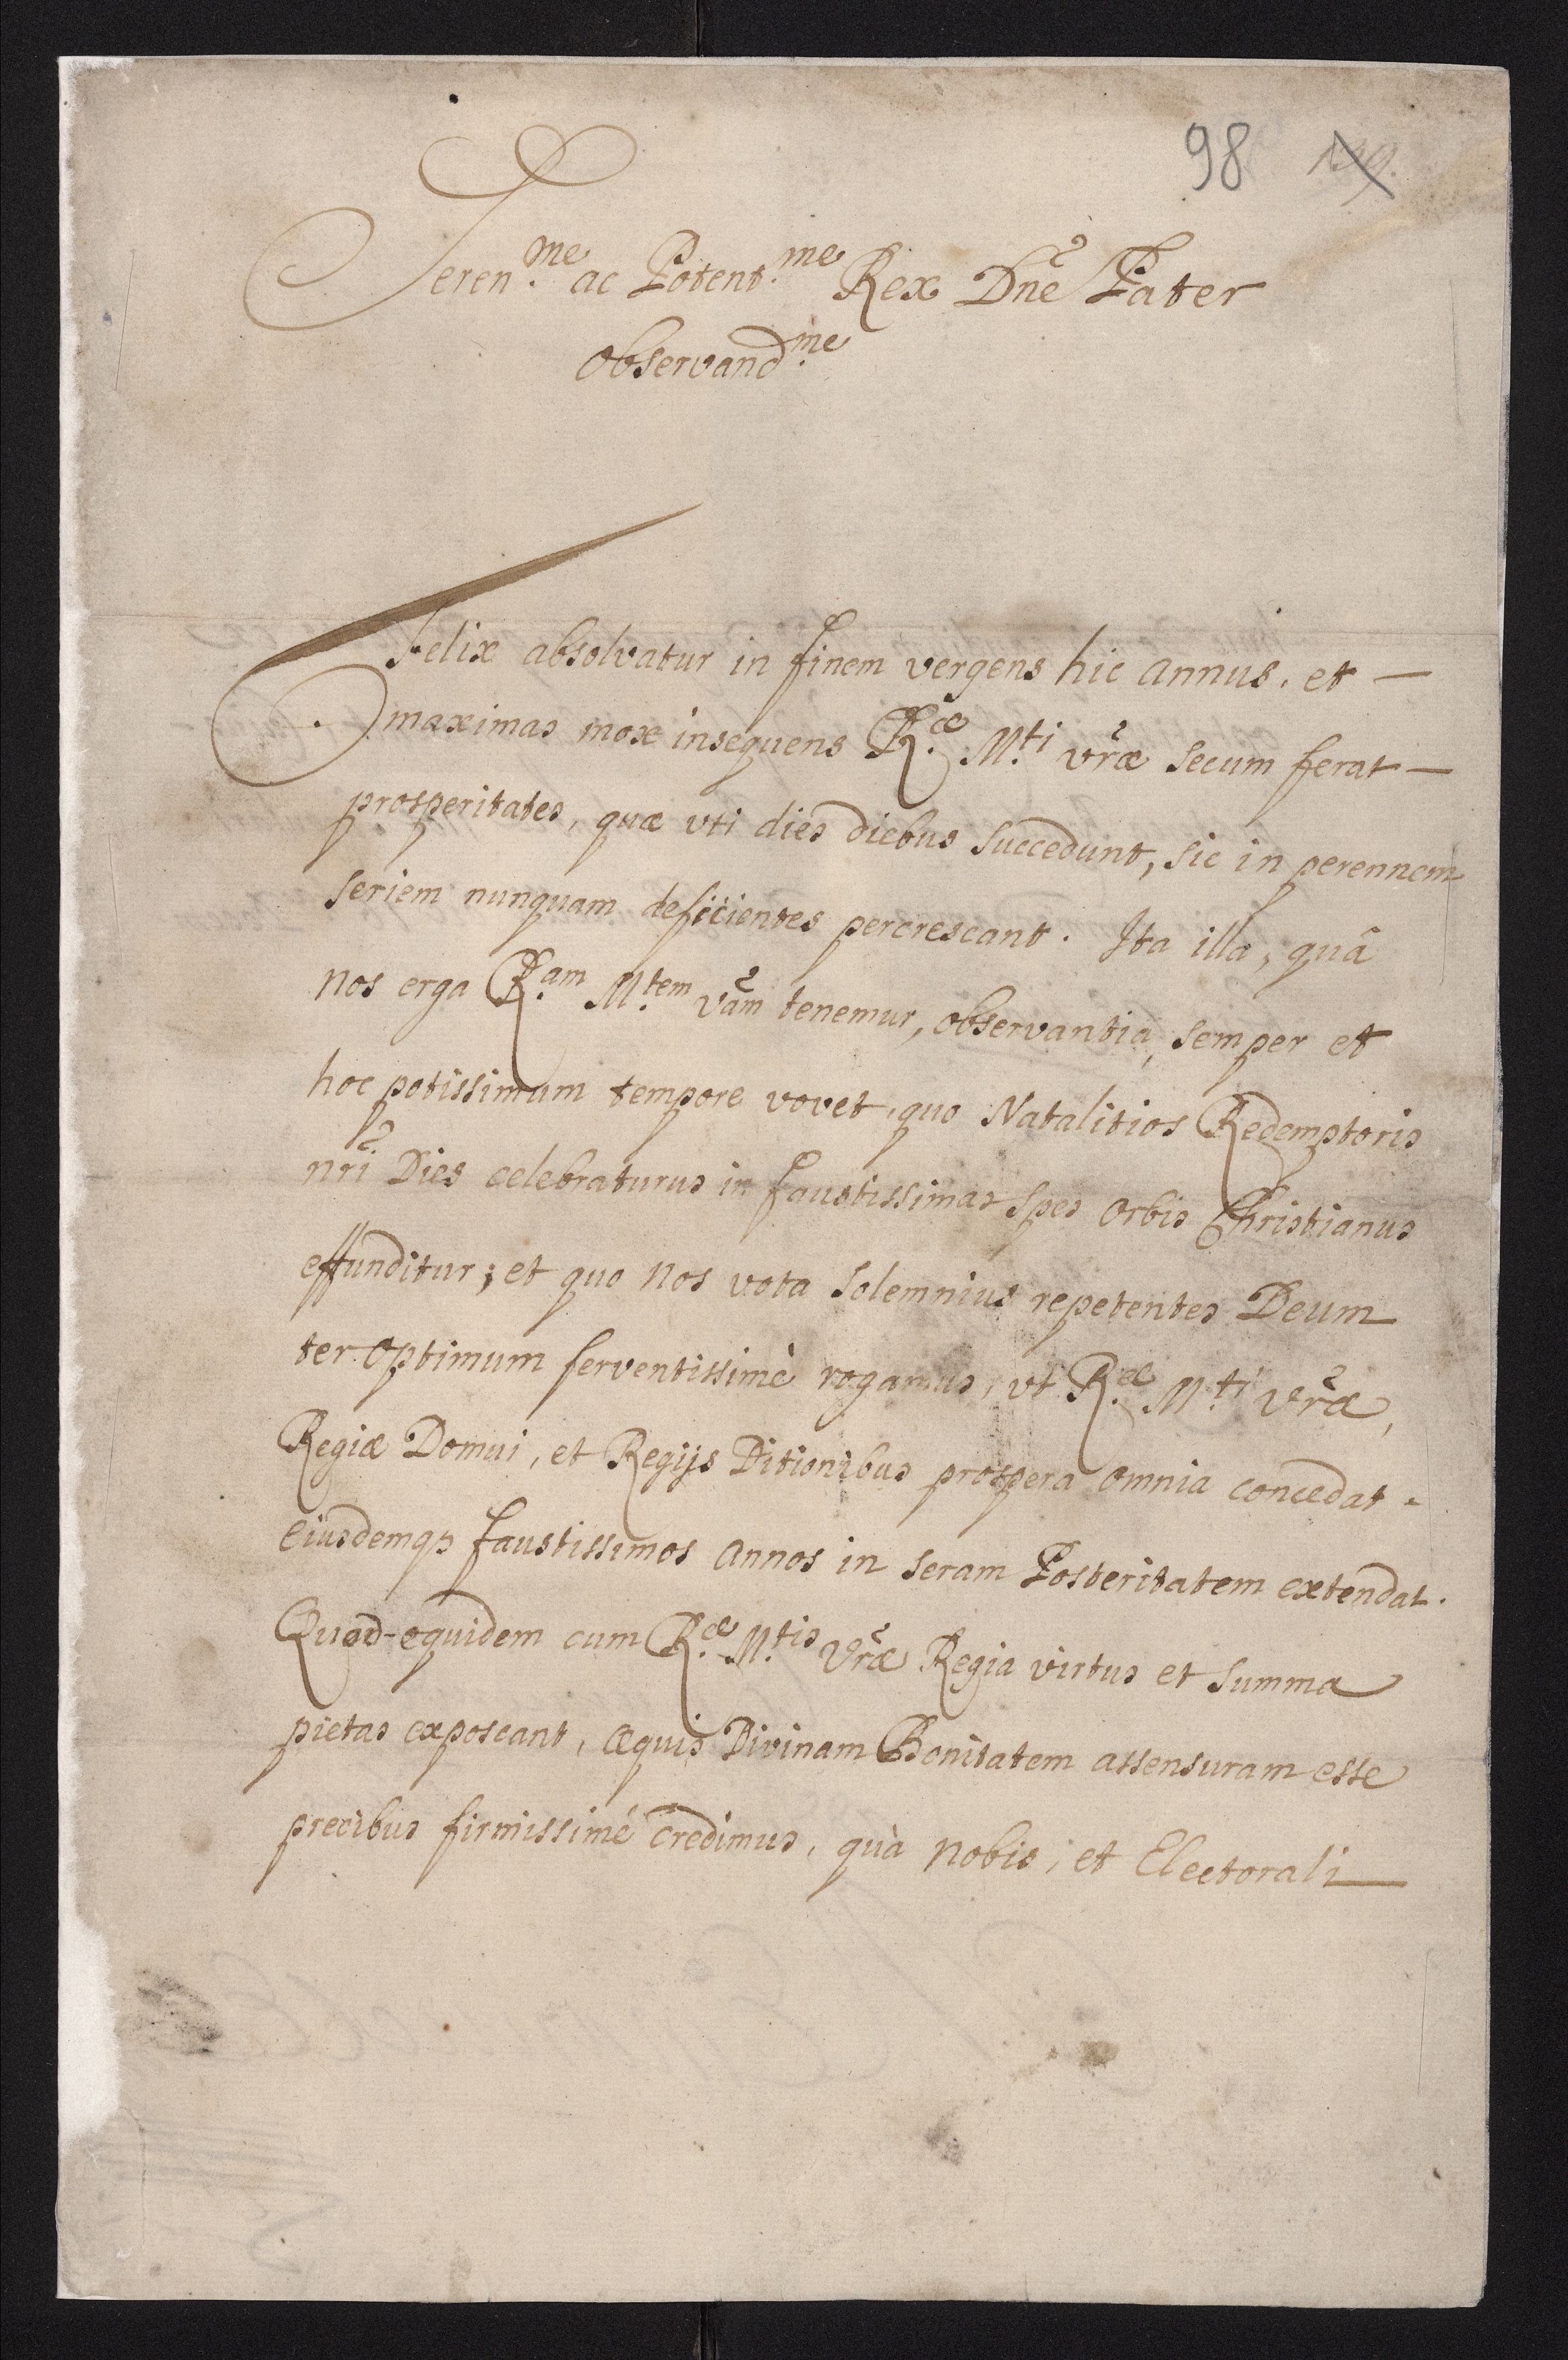 98
Seren.me ac Potent.me Rex Dne Pater
Observand.me
Felix absolvatur in finem vergens hic annus, et —
maximas mox insequens R.æ M.ti vræ secum ferat —
prosperitates, quæ vti dies diebus succedunt, sic in perennem
seriem nunquam deficientes percrescant. Ita illa, quâ
nos erga R.am M.tem vam tenemur, observantia, semper et
hoc potissimum tempore vovet, quo Natalitios Redemptoris
nri Dies celebraturus in faustissimas spes Orbis Christianus
effunditur; et quo nos vota solemnius repetentes Deum
ter Optimum ferventissimè rogamus, vt R.æ M.ti vræ,
Regiæ Domui, et Regijs Ditionibus prospera omnia concedat,
eiusdemqз faustissimos annos in seram Posteritatem extendat.
Quod equidem cum R.æ M.tis Vræ Regia virtus et summa
pietas exposcant, æquis Divinam Bonitatem assensuram esse
precibus firmissimé credimus, quà nobis, et Electorali